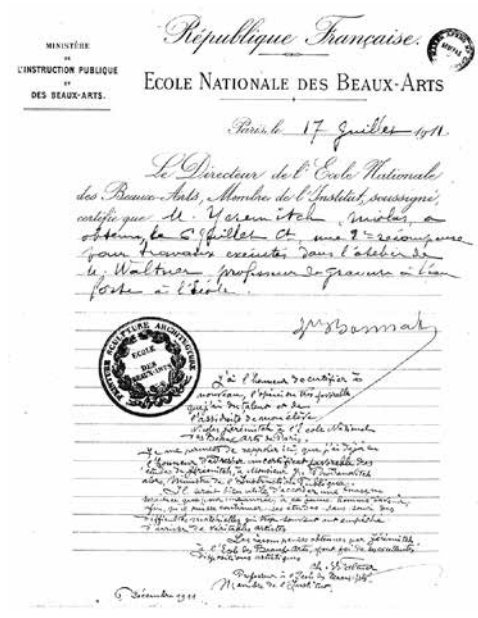 MINISTÈRE
DE
L'INSTRUCTION PUBLIQUE
ET
DES BEAUX-ARTS.
République Française.
ECOLE NATIONALE DES BEAUX-ARTS
Paris, le 17 Juillet 1911.
Le Directeur de l'Ecole Nationale
des Beaux-Arts, Membre de l'Institut, soussigné,
certifie que M. Yeremitch, Nicolas, a
obtenu, le 6 Juillet Ct une 2e récompense
pour travaux exécutés dans l'atelier de
M. Waltner, professeur de gravure à l'eau
forte à l'École.
PEINTURE SCULPTURE ARCHITECTURE
ECOLE
DES
BEAUX-ARTS
J'ai l'honneur de certifier à
nouveau, l'opinion très favorable
que j'ai du talent et de
l'assiduité de mon élève
Nicolas Jérémitch à l'Ecole Nationale
des Beaux arts de Paris.
Je me permets de rappeler ici, que j'ai déjà eu
l'honneur d'adresser un certificat favorable des
études de Jérémitch, à Monsieur
alors, Ministre de l'Instruction Publique.
Il serait bien utile d'accorder une
à ce jeune homme
afin, qu'il puisse continuer ses études sans souci des
difficultés matérielles qui trop souvent ont empêché
d'arriver de véritables artistes
Les récompenses obtenues par Jérémitch,
à l'Ecole des Beaux-Arts, font foi de ses excellentes
dispositions artistiques
Ch. Waltner
Professeur à l'Ecole des Beaux-Arts
Membre de l'Institut
6 Décembre 1911